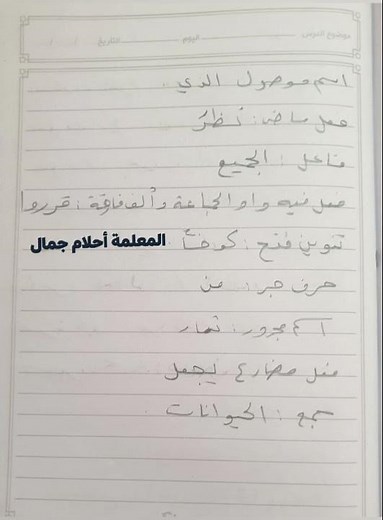 موضوع الدرس اليوم التاريخ / /
اسم موصول الذي
فعل ماض: نظر
فاعل : الجميع
فعل فيه واو الجماعة وألف فارقة : قرروا
تنوين فتح : كوخاً المعلمة أحلام جمال
حرف جر: من
اسم مجرور: ثمار
فعل مضارع ليجعل
جمع : الحيوانات